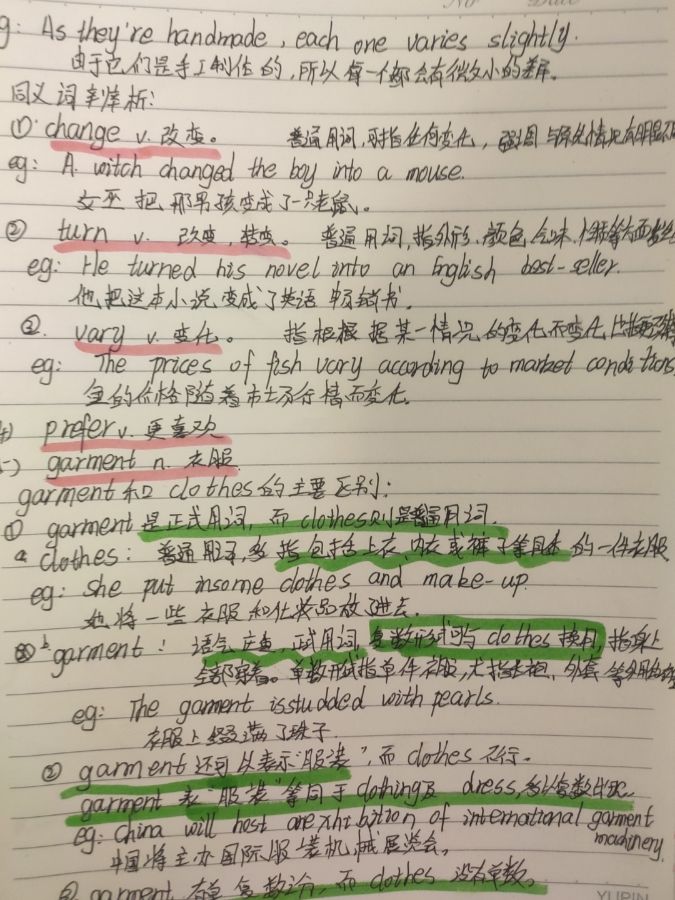 No Date
g: As they're handmade, each one varies slightly.
由于它们是手工制作的,所以每一个都会有很多小的差异。
同义词辨析:
① change v. 改变。 普通用词,可指任何变化,强调与原先情况有明显不
eg: A witch changed the boy into a mouse.
女巫把那男孩变成了一只老鼠。
② turn v. 改变,转变。 普通用词,指外形、颜色、气味、性质等方面
eg: He turned his novel into an English best-seller.
他把这本小说变成了英语畅销书。
③. vary v. 变化。 指根根据某一情况的变化而变化
eg: The prices of fish vary according to market conditions
鱼的价格随着市场行情而变化。
prefer v. 更喜欢
garment n. 衣服
garment和clothes的主要区别:
① garment是正式用词,而clothes则是普通用词.
a clothes: 普通用词,多指包括上衣、内衣或裤子等具体的一件衣服
eg: she put insome clothes and make-up.
她将一些衣服和化妆品放进去.
b garment: 语气庄重,正式用词,复数形式可与clothes换用,指身上
全部穿着。单数形式指单件衣服,尤指长袍、外套等外用的
eg: The garment isstudded with pearls.
衣服上缀满了珠子.
② garment还可以表示"服装",而clothes不行。
garment 表"服装"等同于clothing及 dress,多以复数出现
eg: China will host anexhibition of international garment
machinery.
中国将主办国际服装机械展览会。
③ garment 有单复数之分,而clothes 没有单数。
YUPIN